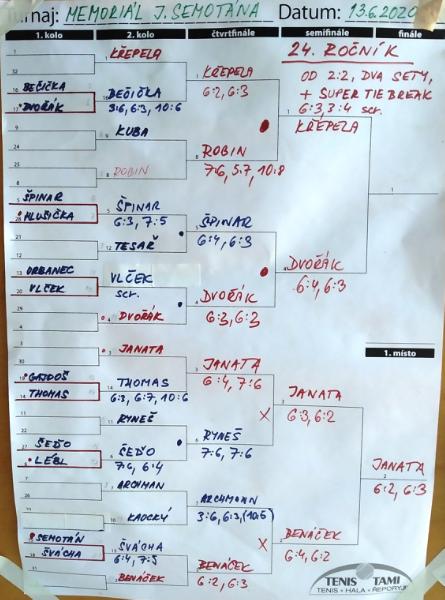 Turnaj: MEMORIÁL J. SEMOTÁNA Datum: 13.6.2020
1. kolo 2. kolo čtvrtfinále semifinále finále
24. ROČNÍK
OD 2:2, DVA SETY,
+ SUPER TIE BREAK
6:3, 3:4 scr.
BEČIČKA
DVOŘÁK
ŠPINAR
HLUŠIČKA
ORBANEC
VLČEK
GAJDOŠ
THOMAS
ŠEĎO
LÉBL
SEMOTÁN
ŠVÁCHA
KŘEPELA
BEČIČKA
3:6, 6:3, 10:6
KUBA
ROBIN
ŠPINAR
6:3, 7:5
TESAŘ
VLČEK
scr.
DVOŘÁK
JANATA
THOMAS
6:3, 6:7, 10:6
RYNEŠ
ŠEĎO
7:6, 6:4
ARCHMAN
KAOCKÝ
ŠVÁCHA
6:4, 7:5
BENÁČEK
KŘEPELA
6:2, 6:3
ROBIN
7:6, 5:7, 10:8
ŠPINAR
6:4, 6:3
DVOŘÁK
6:3, 6:2
JANATA
6:4, 7:6
RYNEŠ
7:6, 7:6
ARCHMANN
3:6, 6:3, (10:5)
BENÁČEK
6:2, 6:3
KŘEPELA
DVOŘÁK
6:4, 6:3
JANATA
6:3, 6:2
BENÁČEK
6:4, 6:2
1. místo
JANATA
6:2, 6:3
TENIS TAMI
TENIS • HALA • ŘEPORYJE